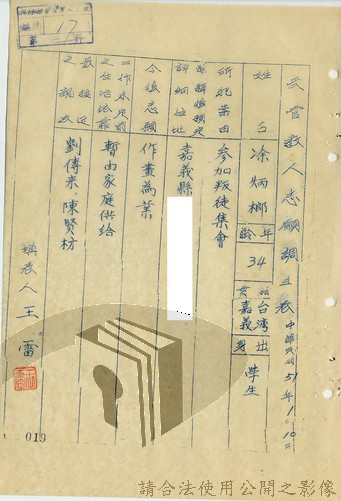 受管教人志願調查表 中華民國51年1月10日
姓名 涂炳榔 年齡 34 籍貫 台灣嘉義 出身 學生
所犯案由 參加叛徒集會
詳細住址 嘉義縣
今後志願 作畫為業
工作未定前之生活依靠 暫由家庭供給
最接近之親友 劉傳來、陳賢枋
填表人 王雷
17
019
請合法使用公開之影像